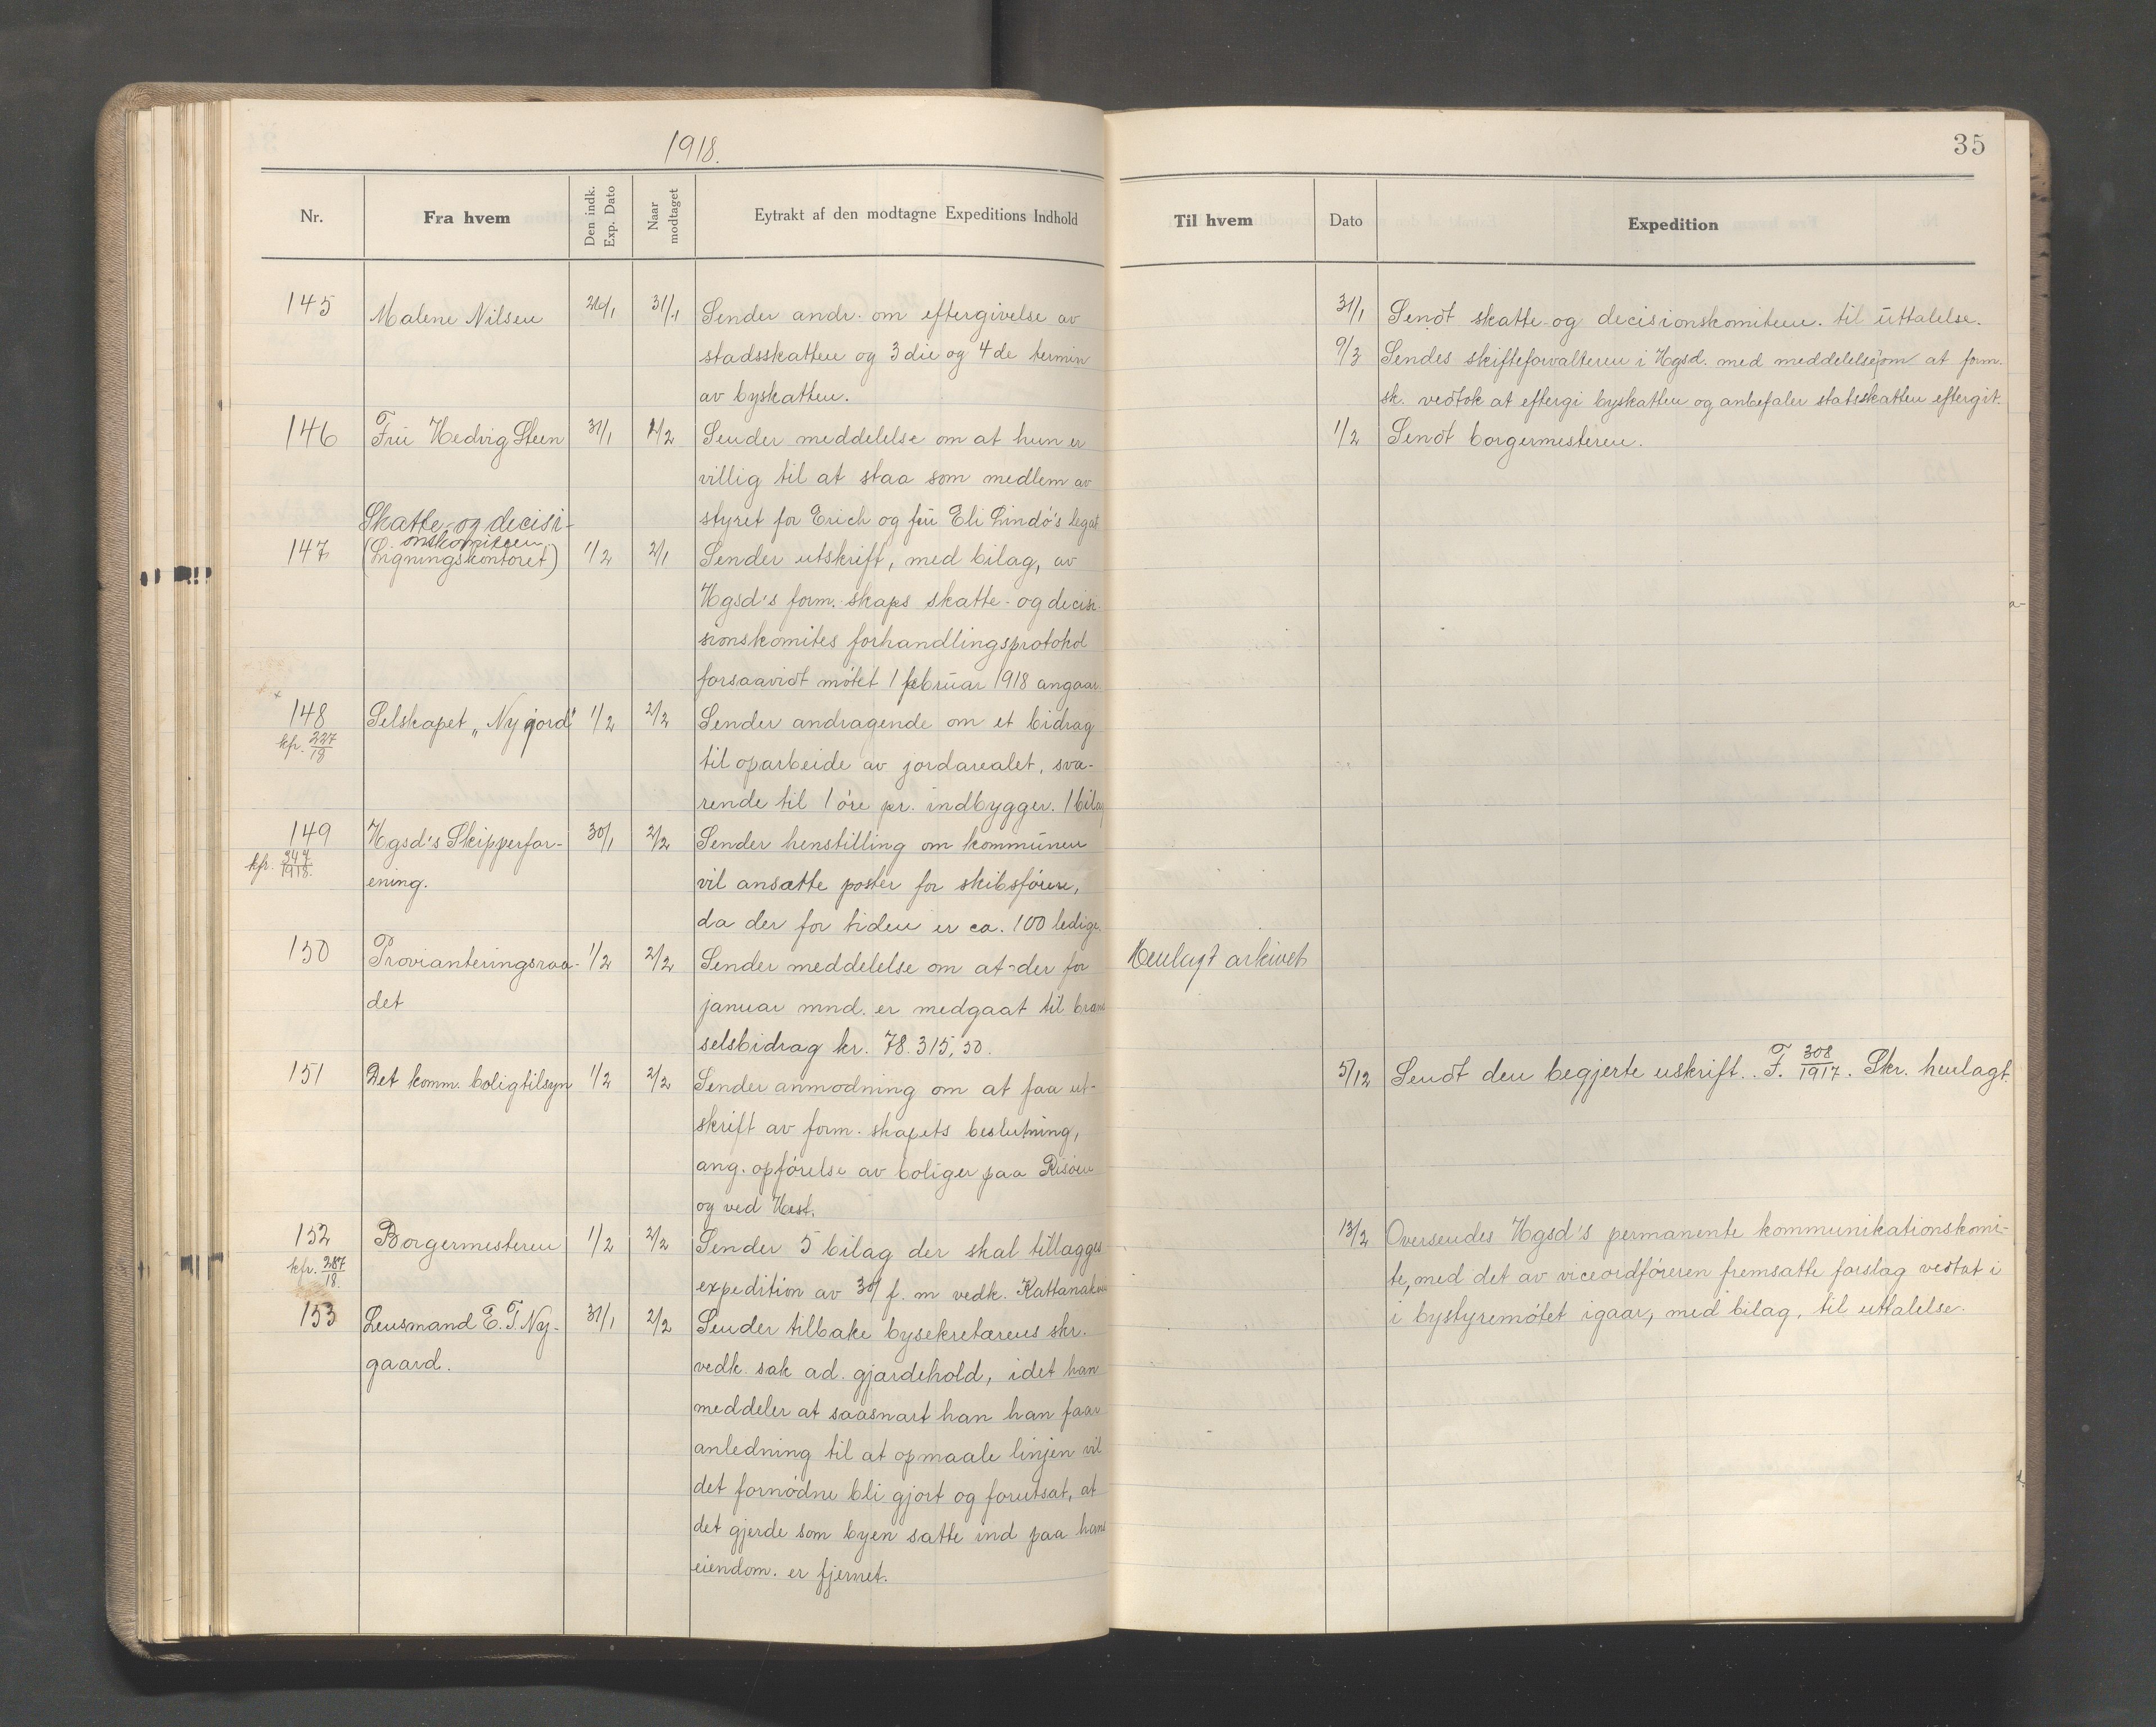 1918.
35
Nr.
Fra hvem
Den indk. Exp. Dato
Naar modtaget
Eytrakt af den modtagne Expeditions Indhold
Til hvem
Dato
Expedition
145 Malene Nilsen 26/1 31/1 Sender andr. om eftergivelse av
stadsskatten og 3die og 4de termin
av byskatten.
31/1 Sendt skatte- og decisionskomiteen. til uttalelse.
9/3 Sendes skifteforvalteren i Hgsd. med meddelelse om at form.
sk. vedtok at eftergi byskatten og anbefaler statsskatten eftergit.
146 Fru Hedvig Steen 31/1 1/2 Sender meddelelse om at hun er
villig til at staa som medlem av
styret for Erich og fru Eli Lindø's legat
1/2 Sendt borgermesteren.
Skatte- og decisi-
onskomiteen
147 (Ligningskontoret) 1/2 2/1 Sender utskrift, med bilag, av
Hgsd's form.skaps skatte- og decisi-
sionskomites forhandlingsprotokol
forsaavidt møtet 1 februar 1918 angaar.
148 Selskapet "Ny jord" 1/2 2/2 Sender andragende om et bidrag
kfr. 227/18
til oparbeide av jordarealet, sva-
rende til 1 øre pr. indbygger. 1 bilag
149 Hgsd's Skipperfor- 30/1 2/2 Sender henstilling om kommunen
kfr. 247/1918.
ening.
vil ansætte poster for skibsførere,
da der for tiden er ca. 100 ledige.
150 Provianteringsraa- 1/2 2/2 Sender meddelelse om at der for
det
januar mnd. er medgaat til bræn
selsbidrag kr. 78.315,50.
Henlagt arkivet
151 Det komm. boligtilsyn 1/2 2/2 Sender anmodning om at faa ut-
skrift av form.skapets beslutning,
ang. opførelse av boliger paa Risøen
og ved Hest.
5/12 Sendt den begjerte uskrift. F. 308/1917. Skr. henlagt.
152 Borgermesteren 1/2 2/2 Sender 5 bilag der skal tillægges
kfr. 287/18.
expedition av 30/1 f. m vedk.
13/2 Oversendes Hgsd's permanente kommunikationskomi-
te, med det av viceordføreren fremsatte forslag vedtat i
i bystyremøtet igaar, med bilag, til uttalelse.
153 Lensmand E. T. Ny- 31/1 2/2 Sender tilbake bysekretærens skr.
gaard.
vedk. sak ad. gjærdehold, idet han
meddeler at saasnart han han faar
anledning til at opmaale linjen vil
det fornødne bli gjort og forutsat, at
det gjerde som byen satte ind paa hans
eiendom. er fjernet.